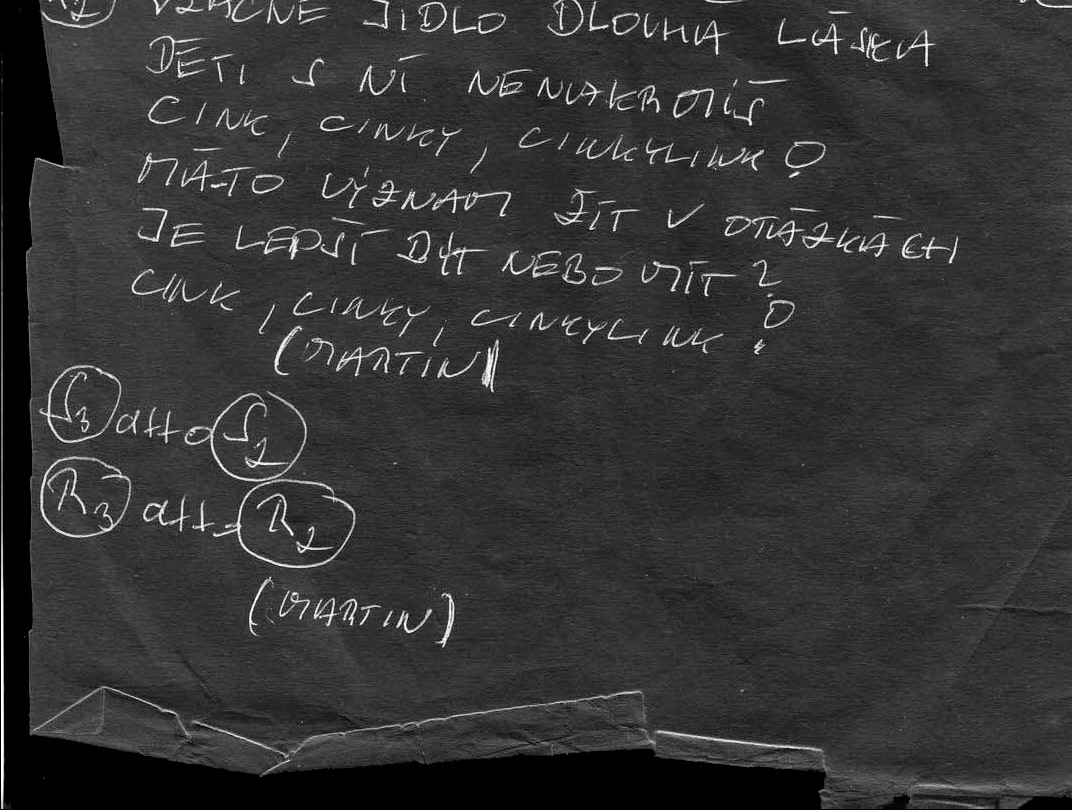 R2 VZÁCNÉ JÍDLO DLOUHÁ LÁSKA
DĚTI S NÍ NENAKRMÍŠ
CINK, CINKY, CINKYLINK!
MÁ-TO VÝZNAM ŽÍT V OTÁZKÁCH
JE LEPŠÍ BÝT NEBO MÍT?
CINK, CINKY, CINKYLINK!
(MARTIN)
S3 atto S2
R3 atto R2
(MARTIN)